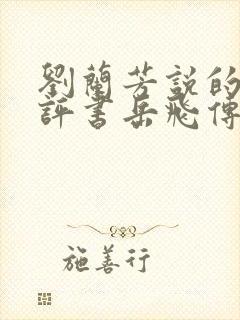 劉蘭芳説的
評書岳飛傳
施善行